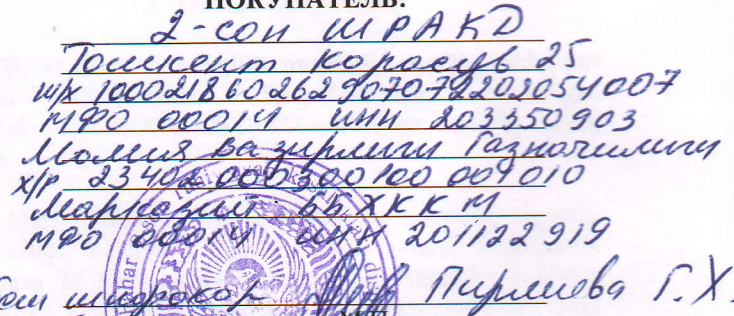 ПОКУПАТЕЛЬ:
2-сон ШРАКД
Тошкент Корасув 25
ш/х 100021860262907072202054007
МФО 00014 ИНН 203350903
Молия вазирлиги Газначилиги
х/р 23402000300100001010
Марказий ББ ХККМ
МФО 00014 ИНН 201122919
Бош шифокор Пирлиева Г.Х.